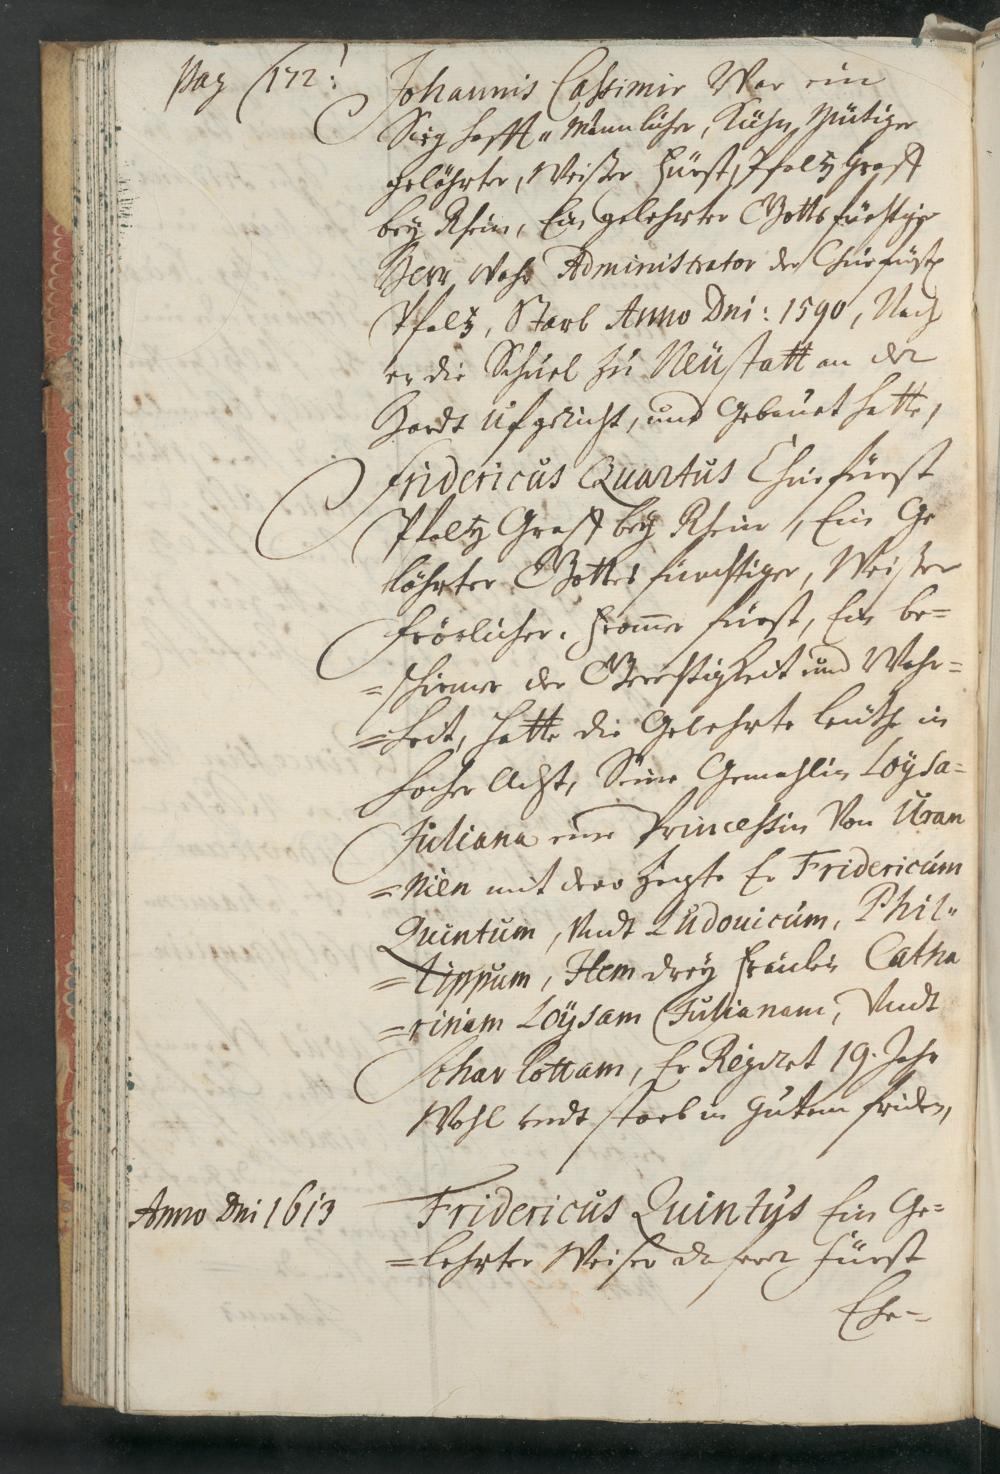 Pag 172:
Johannis Cassimir War ein
Sieghafft, Männlicher, Kühn, Mütiger
gelöhrter, Weißer Fürst, Pfaltz Graff
bey Rhein, Ein gelehrter Gottsfürchtiger
Herr Wahr Administrator der Churfürstl
Pfaltz, Starb Anno Dni: 1590, Nach
er die Schuel zu Neüstatt an der
Hardt Ufgericht, und Gebauet hatte,
Fridericus Quartus Churfürst
Pfaltz Graff bey Rhein, Ein Ge
löhrter Gottesfürchtiger, Weißer
Frörlicher. Frommer fürst, Ein be=
=schirmer der Gerechtigkeit und Wahr=
=heit, Hatte die Gelehrte leuthe in
hocher Acht, Seine Gemahlin Loÿsa=
Juliana eine Princessin Von Uran
=nien mit dero Zeugte Er Fridericum
Quintum, Undt Ludouicum, Phil=
=lippum, Item dreÿ Freulin Catha
=rinam Loÿsam Julianam, Undt
Scharlottam, Er Regiret 19. Jahr
Wohl undt starb in gutem friden,
Anno Dni 1613
Fridericus Quintus Ein Ge=
=lehrter Weiser Fürst
Chr=